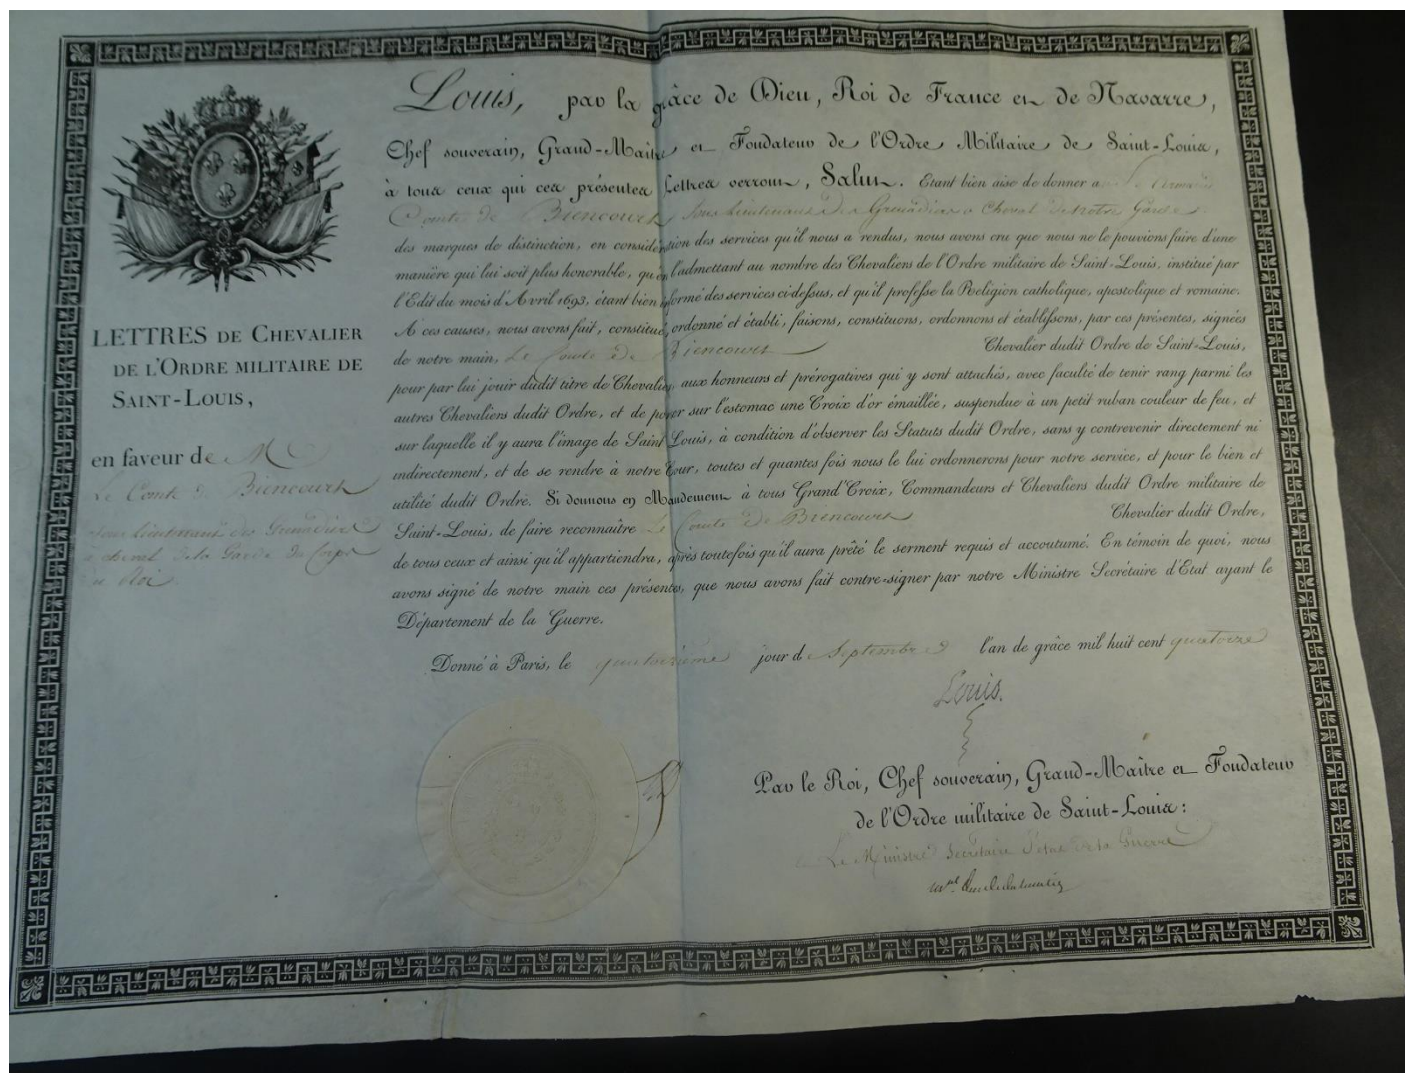 LETTRES DE CHEVALIER
DE L'ORDRE MILITAIRE DE
SAINT-LOUIS,
en faveur de M
Le Comte de Biencourt
Sous lieutenant des Grenadiers
à cheval de la Garde du Corps
du Roi.
Louis, par la grâce de Dieu, Roi de France et de Navarre,
Chef souverain, Grand-Maître et Fondateur de l'Ordre Militaire de Saint-Louis,
à tous ceux qui ces présentes Lettres verront, Salut. Etant bien aise de donner a
Comte de Biencourt Sous Lieutenant des Grenadiers a Cheval de Notre Garde
des marques de distinction, en considération des services qu'il nous a rendus, nous avons cru que nous ne le pouvions faire d'une
manière qui lui soit plus honorable, qu'en l'admettant au nombre des Chevaliers de l'Ordre militaire de Saint-Louis, institué par
l'Edit du mois d'Avril 1693, étant bien informé des services ci-dessus, et qu'il professe la Religion catholique, apostolique et romaine.
A ces causes, nous avons fait, constitué, ordonné et établi, faisons, constituons, ordonnons et établissons, par ces présentes, signées
de notre main, Le Comte de Biencourt Chevalier dudit Ordre de Saint-Louis,
pour par lui jouir dudit titre de Chevalier, aux honneurs et prérogatives qui y sont attachés, avec faculté de tenir rang parmi les
autres Chevaliers dudit Ordre, et de porter sur l'estomac une Croix d'or émaillée, suspendue à un petit ruban couleur de feu, et
sur laquelle il y aura l'image de Saint Louis, à condition d'observer les Statuts dudit Ordre, sans y contrevenir directement ni
indirectement, et de se rendre à notre Cour, toutes et quantes fois nous le lui ordonnerons pour notre service, et pour le bien et
utilité dudit Ordre. Si donnons en Mandement à tous Grand'Croix, Commandeurs et Chevaliers dudit Ordre militaire de
Saint-Louis, de faire reconnaître Le Comte de Biencourt Chevalier dudit Ordre,
de tous ceux et ainsi qu'il appartiendra, après toutefois qu'il aura prêté le serment requis et accoutumé. En témoin de quoi, nous
avons signé de notre main ces présentes, que nous avons fait contre-signer par notre Ministre Secrétaire d'Etat ayant le
Département de la Guerre.
Donné à Paris, le quatorzième jour de Septembre l'an de grâce mil huit cent quatorze
Louis.
Par le Roi, Chef souverain, Grand-Maître et Fondateur
de l'Ordre militaire de Saint-Louis:
Le Ministre Secrétaire d'Etat de la Guerre